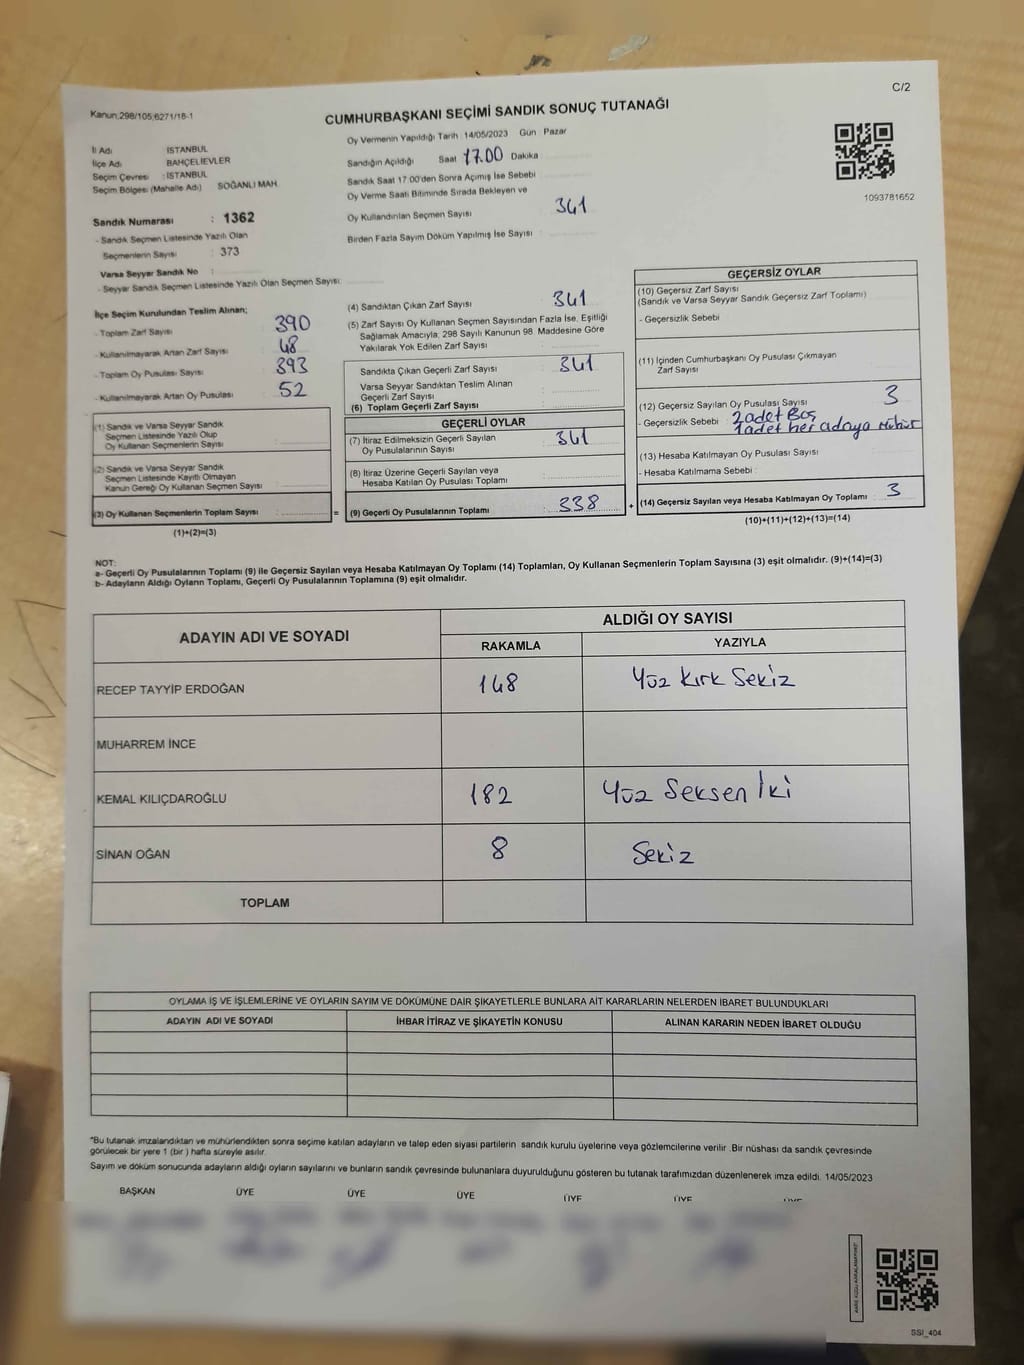 C/2
Kanun;298/105;6271/18-1
CUMHURBAŞKANI SEÇİMİ SANDIK SONUÇ TUTANAĞI
İl Adı : İSTANBUL
İlçe Adı : BAHÇELİEVLER
Seçim Çevresi : İSTANBUL
Seçim Bölgesi (Mahalle Adı) SOĞANLI MAH.
Sandık Numarası : 1362
- Sandık Seçmen Listesinde Yazılı Olan
Seçmenlerin Sayısı : 373
Varsa Seyyar Sandık No :
- Seyyar Sandık Seçmen Listesinde Yazılı Olan Seçmen Sayısı:
Oy Vermenin Yapıldığı Tarih 14/05/2023 Gün Pazar
Sandığın Açıldığı Saat 17.00 Dakika
Sandık Saat 17:00'den Sonra Açımış İse Sebebi
Oy Verme Saati Bitiminde Sırada Bekleyen ve
Oy Kullandırılan Seçmen Sayısı 341
Birden Fazla Sayım Döküm Yapılmış İse Sayısı :
1093781652
İlçe Seçim Kurulundan Teslim Alınan;
- Toplam Zarf Sayısı : 390
- Kullanılmayarak Artan Zarf Sayısı : 48
- Toplam Oy Pusulası Sayısı : 393
- Kullanılmayarak Artan Oy Pusulası : 52
(1) Sandık ve Varsa Seyyar Sandık
Seçmen Listesinde Yazılı Olup
Oy Kullanan Seçmenlerin Sayısı :
(2) Sandık ve Varsa Seyyar Sandık
Seçmen Listesinde Kayıtlı Olmayan
Kanun Gereği Oy Kullanan Seçmen Sayısı :
(3) Oy Kullanan Seçmenlerin Toplam Sayısı :
(1)+(2)=(3)
(4) Sandıktan Çıkan Zarf Sayısı : 341
(5) Zarf Sayısı Oy Kullanan Seçmen Sayısından Fazla İse, Eşitliği
Sağlamak Amacıyla, 298 Sayılı Kanunun 98. Maddesine Göre
Yakılarak Yok Edilen Zarf Sayısı :
Sandıkta Çıkan Geçerli Zarf Sayısı : 341
Varsa Seyyar Sandıktan Teslim Alınan
Geçerli Zarf Sayısı :
(6) Toplam Geçerli Zarf Sayısı :
GEÇERLİ OYLAR
(7) İtiraz Edilmeksizin Geçerli Sayılan
Oy Pusulalarının Sayısı : 341
(8) İtiraz Üzerine Geçerli Sayılan veya
Hesaba Katılan Oy Pusulası Toplamı :
= (9) Geçerli Oy Pusulalarının Toplamı : 338
GEÇERSİZ OYLAR
(10) Geçersiz Zarf Sayısı :
(Sandık ve Varsa Seyyar Sandık Geçersiz Zarf Toplamı)
- Geçersizlik Sebebi :
(11) İçinden Cumhurbaşkanı Oy Pusulası Çıkmayan
Zarf Sayısı :
(12) Geçersiz Sayılan Oy Pusulası Sayısı : 3
- Geçersizlik Sebebi : 2 adet Boş
1 adet her adaya Mühür
(13) Hesaba Katılmayan Oy Pusulası Sayısı :
- Hesaba Katılmama Sebebi :
+ (14) Geçersiz Sayılan veya Hesaba Katılmayan Oy Toplamı : 3
(10)+(11)+(12)+(13)=(14)
NOT:
a- Geçerli Oy Pusulalarının Toplamı (9) ile Geçersiz Sayılan veya Hesaba Katılmayan Oy Toplamı (14) Toplamları, Oy Kullanan Seçmenlerin Toplam Sayısına (3) eşit olmalıdır. (9)+(14)=(3)
b- Adayların Aldığı Oyların Toplamı, Geçerli Oy Pusulalarının Toplamına (9) eşit olmalıdır.
ADAYIN ADI VE SOYADI ALDIĞI OY SAYISI
RAKAMLA YAZIYLA
RECEP TAYYİP ERDOĞAN 148 Yüz Kırk Sekiz
MUHARREM İNCE
KEMAL KILIÇDAROĞLU 182 Yüz Seksen İki
SİNAN OĞAN 8 Sekiz
TOPLAM
OYLAMA İŞ VE İŞLEMLERİNE VE OYLARIN SAYIM VE DÖKÜMÜNE DAİR ŞİKAYETLERLE BUNLARA AİT KARARLARIN NELERDEN İBARET BULUNDUKLARI
ADAYIN ADI VE SOYADI İHBAR İTİRAZ VE ŞİKAYETİN KONUSU ALINAN KARARIN NEDEN İBARET OLDUĞU
*Bu tutanak imzalandıktan ve mühürlendikten sonra seçime katılan adayların ve talep eden siyasi partilerin sandık kurulu üyelerine veya gözlemcilerine verilir .Bir nüshası da sandık çevresinde
görülecek bir yere 1 (bir ) hafta süreyle asılır.
Sayım ve döküm sonucunda adayların aldığı oyların sayılarını ve bunların sandık çevresinde bulunanlara duyurulduğunu gösteren bu tutanak tarafımızdan düzenlenerek imza edildi. 14/05/2023
BAŞKAN ÜYE ÜYE ÜYE ÜYE ÜYE ÜYE
KARE KODU KARALAMAYINIZ!
SSI_404